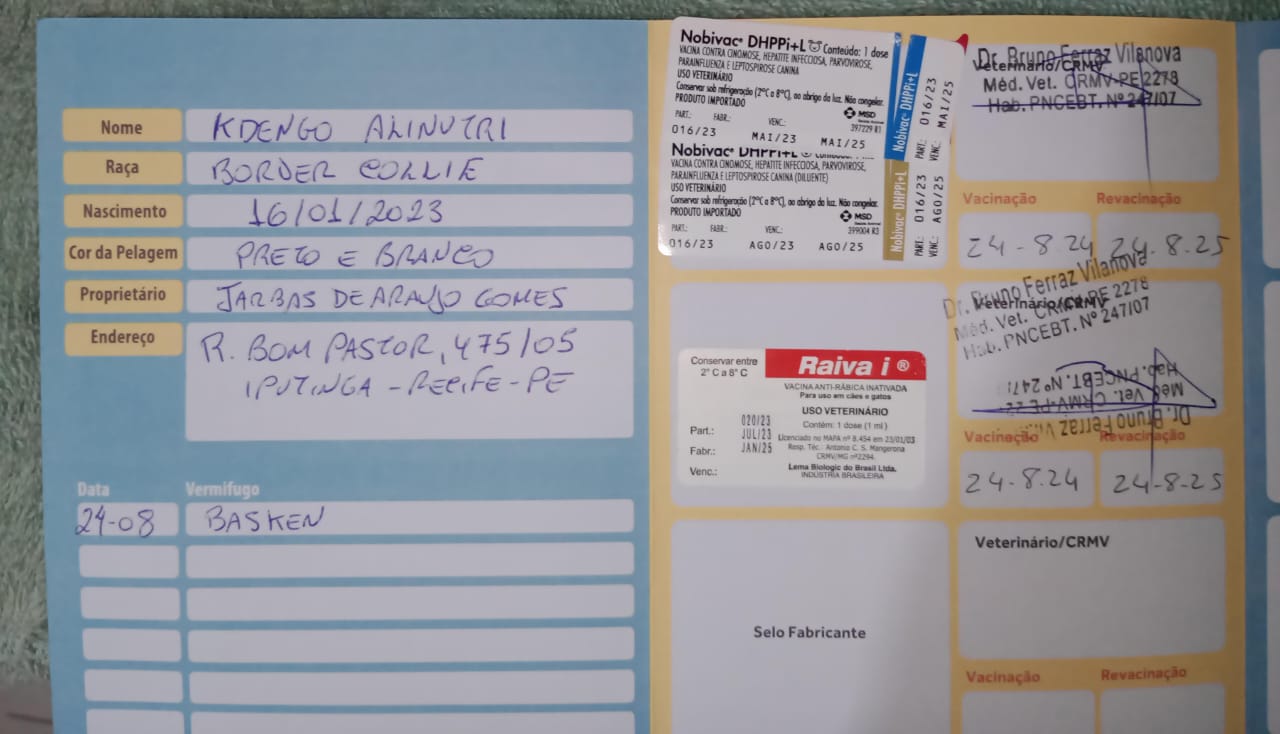 Nome KDENGO ALINUTRI
Raça BORDER COLLIE
Nascimento 16/01/2023
Cor da Pelagem PRETO E BRANCO
Proprietário JARBAS DE ARAUJO GOMES
Endereço R. BOM PASTOR, 475/05
IPUTINGA - RECIFE - PE
Data Vermifugo
24-08 BASKEN
Nobivac® DHPPi+L Conteúdo: 1 dose
VACINA CONTRA CINOMOSE, HEPATITE INFECCIOSA, PARVOVIROSE,
PARAINFLUENZA E LEPTOSPIROSE CANINA
USO VETERINÁRIO
Conservar sob refrigeração (2°C a 8°C), ao abrigo da luz. Não congelar.
PRODUTO IMPORTADO
MSD
397229 R1
PART.: FABR.: VENC.:
016/23 MAI/23 MAI/25
Nobivac® DHPPi+L
PART.: 016/23
VENC.: MAI/25
Nobivac® DHPPi+L
VACINA CONTRA CINOMOSE, HEPATITE INFECCIOSA, PARVOVIROSE,
PARAINFLUENZA E LEPTOSPIROSE CANINA (DILUENTE)
USO VETERINÁRIO
Conservar sob refrigeração (2°C a 8°C), ao abrigo da luz. Não congelar.
PRODUTO IMPORTADO
MSD
399004 R3
PART.: FABR.: VENC.:
016/23 AGO/23 AGO/25
Nobivac® DHPPi+L
PART.: 016/23
VENC.: AGO/25
Veterinário/CRMV
Dr. Bruno Ferraz Vilanova
Méd. Vet. CRMV-PE 2278
Hab. PNCEBT. Nº 247/07
Vacinação Revacinação
24-8.24 24-8.25
Conservar entre
2° C a 8° C
Raiva i ®
VACINA ANTI-RÁBICA INATIVADA
Para uso em cães e gatos
USO VETERINÁRIO
Contém: 1 dose (1 ml)
Licenciado no MAPA nº 8.454 em 23/01/03
Resp. Téc.- Antonio C. S. Mangerona
CRMV/MG nº2294.
Lema Biologic do Brasil Ltda.
INDÚSTRIA BRASILEIRA
Part.: 020/23
Fabr.: JUL/23
Venc.: JAN/25
Veterinário/CRMV
Dr. Bruno Ferraz Vilanova
Méd. Vet. CRMV-PE 2278
Hab. PNCEBT. Nº 247/07
Dr. Bruno Ferraz
Méd. Vet. CRMV-PE
Hab. PNCEBT. Nº
Vacinação Revacinação
24-8.24 24-8-25
Selo Fabricante
Veterinário/CRMV
Vacinação Revacinação